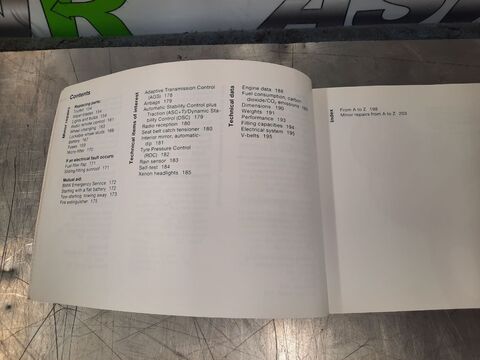 Contents
Replacing parts:
Toolkit 154
Wiper blades 154
Lights and bulbs 154
Radio remote control 161
Wheel changing 162
Lockable wheel studs 166
Battery
Fuses
Micro-filter 170
If an electrical fault occurs:
Fuel filler flap 171
Sliding/tilting sunroof 171
Mutual aid:
BMW Emergency Service 172
Starting with a flat battery 172
Tow-starting, towing away 173
Fire extinguisher 175
Technical items of interest
Adaptive Transmission Control
(AGS) 178
Airbags 179
Automatic Stability Control plus
Traction (ASC+T)/Dynamic Sta-
bility Control (DSC) 179
Radio reception 180
Seat belt catch tensioner 180
Interior mirror, automatic-
dip 181
Tyre Pressure Control
(RDC) 182
Rain sensor 183
Self-test 184
Xenon headlights 185
Technical data
Engine data 188
Fuel consumption, carbon
dioxide/CO₂ emissions
Dimensions 190
Weights 191
Performance 193
Filling capacities 194
Electrical system 195
V-belts 195
Index
From A to Z 198
Minor repairs from A to Z 203